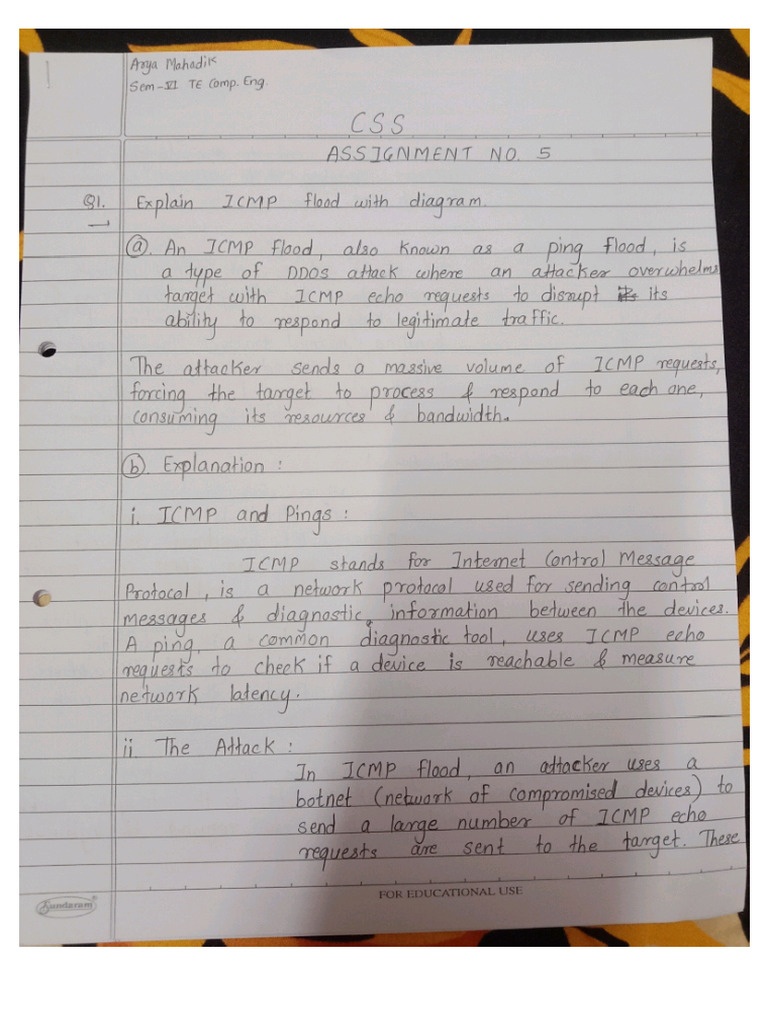 Arya Mahadik
Sem-VI TE Comp. Eng.
CSS
ASSIGNMENT NO. 5
Q1. Explain ICMP flood with diagram.
(a). An ICMP flood, also known as a ping flood, is
a type of DDOS attack where an attacker overwhelms
target with ICMP echo requests to disrupt its
ability to respond to legitimate traffic.
The attacker sends a massive volume of ICMP requests,
forcing the target to process & respond to each one,
consuming its resources & bandwidth.
(b). Explanation :
i. ICMP and Pings :
ICMP stands for Internet Control Message
Protocol, is a network protocol used for sending control
messages & diagnostic, information between the devices.
A ping, a common diagnostic tool, uses ICMP echo
requests to check if a device is reachable & measure
network latency.
ii. The Attack :
In ICMP flood, an attacker uses a
botnet (network of compromised devices) to
send a large number of ICMP echo
requests are sent to the target. These
Sundaram
FOR EDUCATIONAL USE